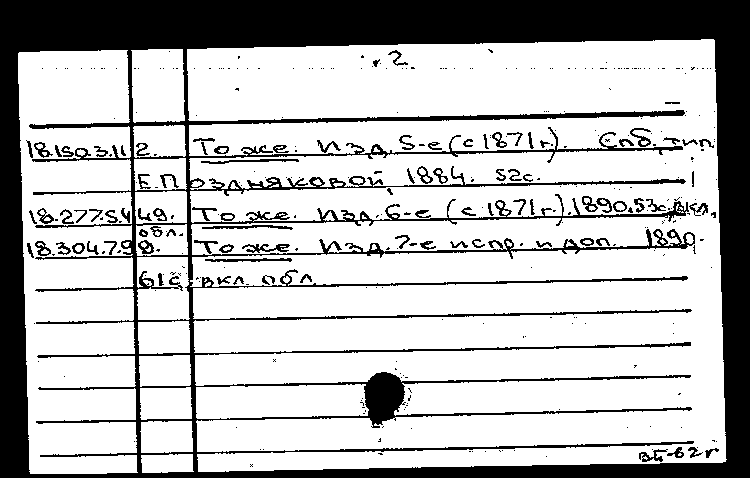 2
18.150.3.112. То же. Изд. 5-е (с 1871 г.). Спб, тип.
Е. Поздняковой, 1884. 52с.
18.277.5.449. То же. Изд. 6-е (с 1871 г.). 1890. 53с. вкл.
обл.
18.304.7.98. То же. Изд. 7-е испр. и доп. 1890.
61с. вкл. обл.